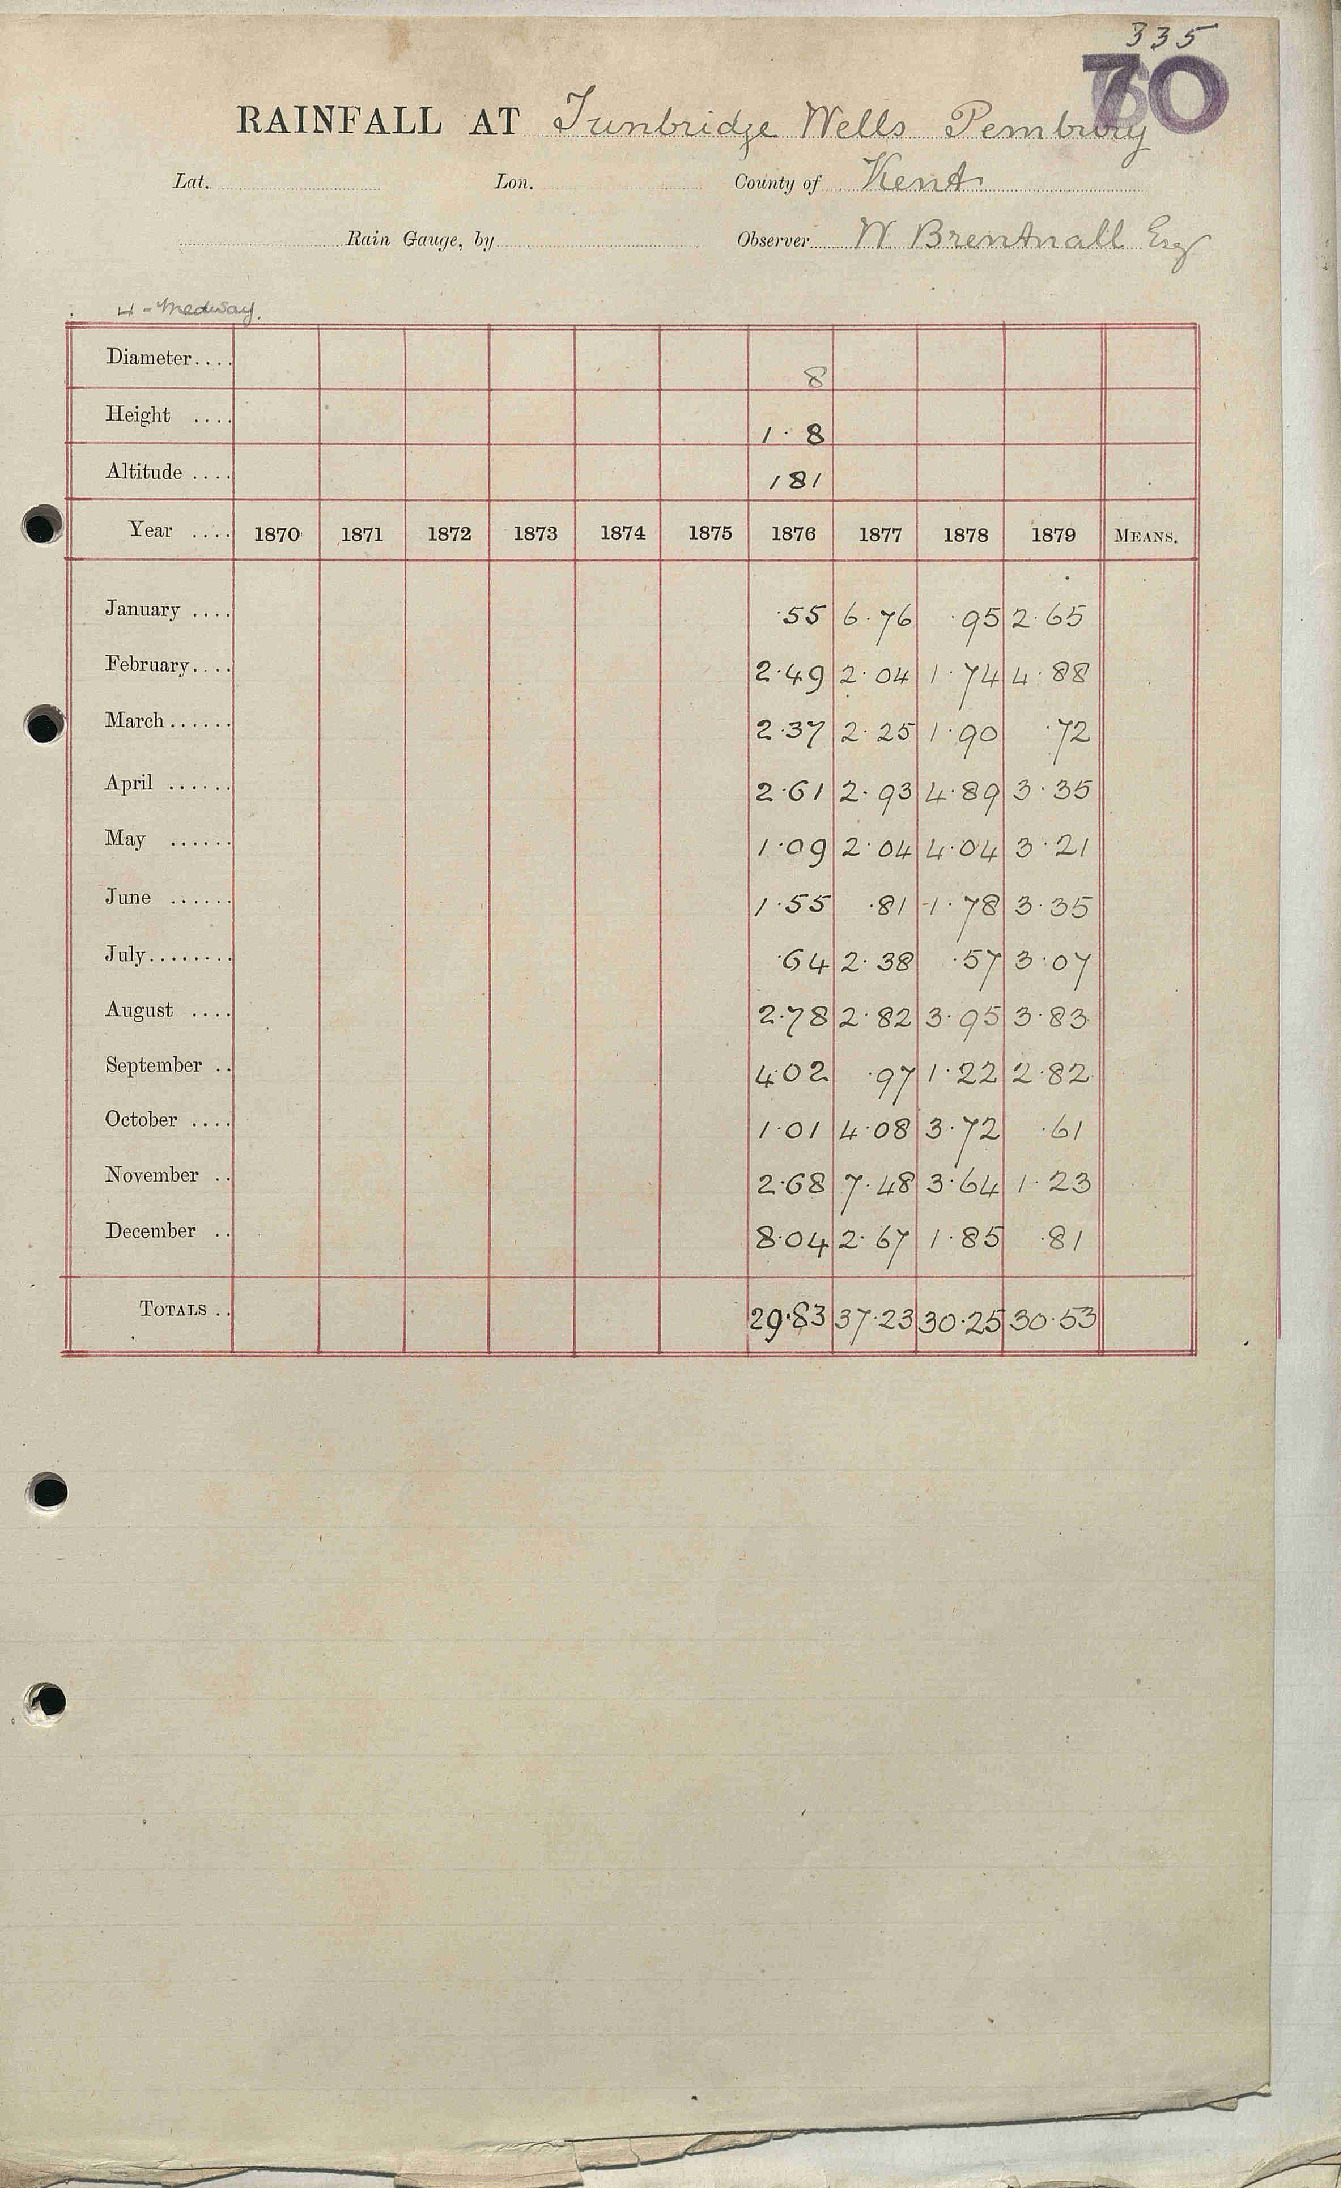 335
70
RAINFALL AT Tunbridge Wells Pembury
Lat. Lon. County of Kent
Rain Gauge, by Observer W Brentnall Esq
4 - Medway.
Diameter.... 8
Height .... 1.8
Altitude .... 181
Year .... 1870 1871 1872 1873 1874 1875 1876 1877 1878 1879 MEANS.
January .... .55 6.76 .95 2.65
February.... 2.49 2.04 1.74 4.88
March...... 2.37 2.25 1.90 .72
April ...... 2.61 2.93 4.89 3.35
May ...... 1.09 2.04 4.04 3.21
June ...... 1.55 .81 1.78 3.35
July........ .64 2.38 .57 3.07
August .... 2.78 2.82 3.95 3.83
September .. 4.02 .97 1.22 2.82
October .... 1.01 4.08 3.72 .61
November .. 2.68 7.48 3.64 1.23
December .. 8.04 2.67 1.85 .81
TOTALS .. 29.83 37.23 30.25 30.53